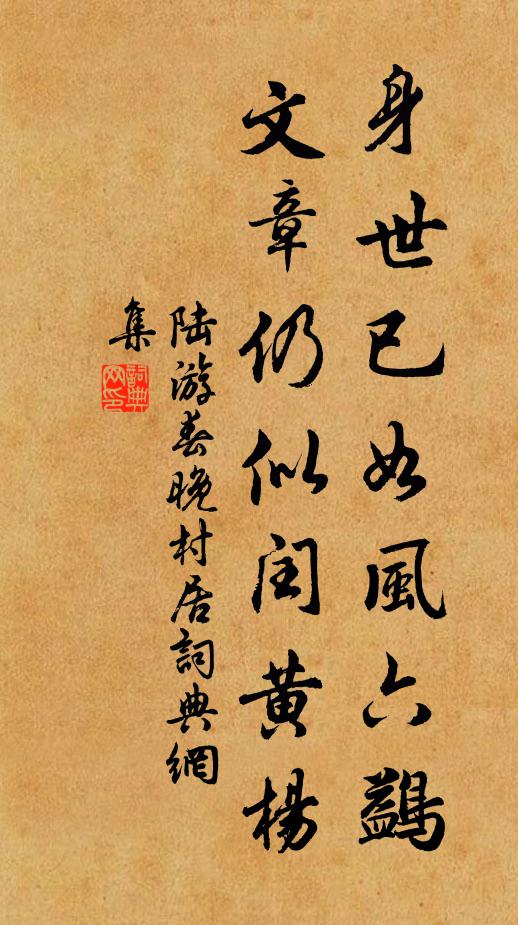 身世已如風六鷁
文章仍似閏黃楊
陸游春晚村居詞典網
集
詞典
网印